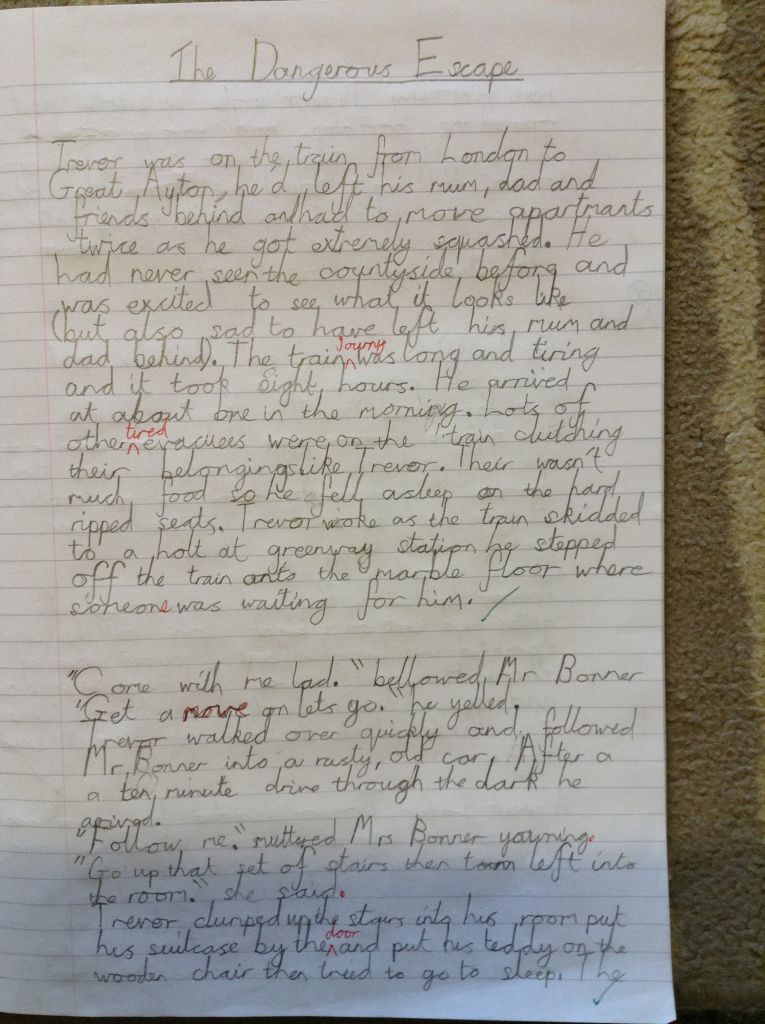 The Dangerous Escape
Trevor was on the train from London to
Great Ayton, he'd left his mum, dad and
friends behind and had to move apartmants
twice as he got extremely squashed. He
had never seen the countyside before and
was excited to see what it looks like
(but also sad to have left his mum and
dad behind). The train journy was long and tiring
and it took eight hours. He arrived
at about one in the morning. Lots of
other tired evacuees were on the train clutching
their belongings like Trevor. Their wasn't
much food so he fell asleep on the hard
ripped seats. Trevor woke as the train skidded
to a holt at greenway station he stepped
off the train onto the marble floor where
someone was waiting for him.
"Come with me lad." bellowed Mr Bonner
"Get a move on lets go." he yelled.
Trevor walked over quickly and followed
Mr Bonner into a rusty, old car. After a
a ten minute drive through the dark he
arived.
"Follow me." muttered Mrs Bonner yawning.
"Go up that set of stairs then turn left into
the room." she said.
Trevor clumped up the stairs into his room put
his suitcase by the door and put his teddy on the
wooden chair then tried to go to sleep. The